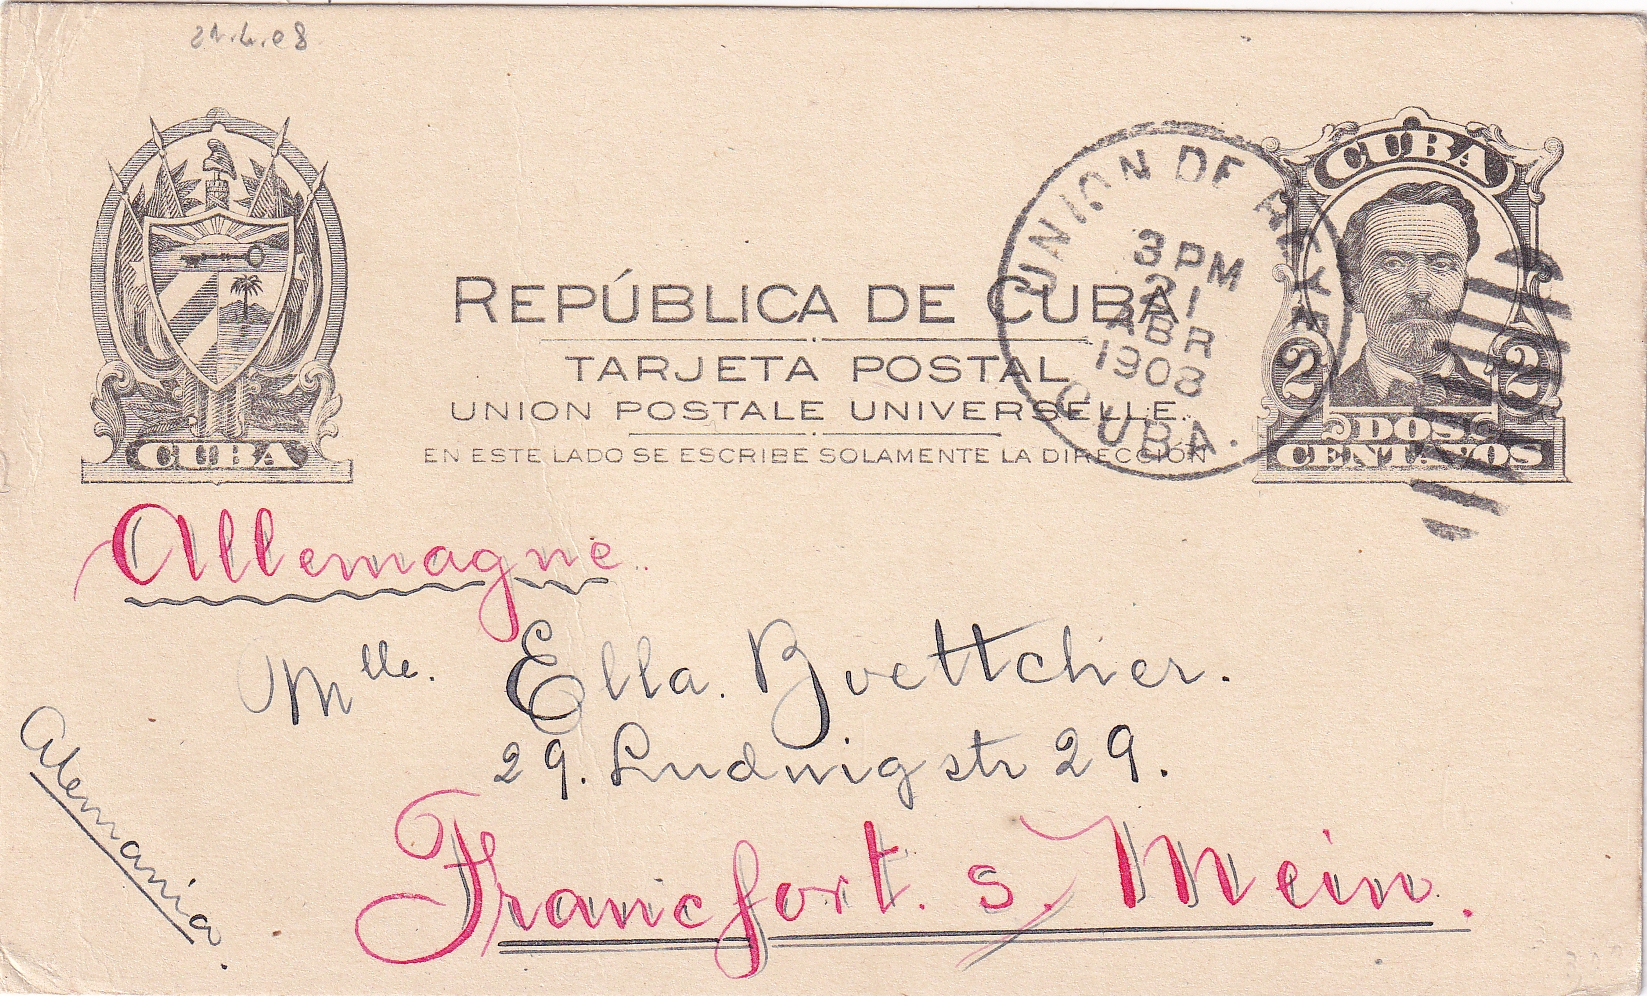 21.4.08
CUBA
UNION DE
3 PM
21
ABR
1908
CUBA.
REPÚBLICA DE CUBA
TARJETA POSTAL
UNION POSTALE UNIVERSELLE.
EN ESTE LADO SE ESCRIBE SOLAMENTE LA DIRECCIÓN
2 2
DOS
CENTAVOS
CUBA
Allemagne.
Mlle. Ella. Boettcher.
29. Ludwigstr 29.
Alemania.
Francfort. s. Mein.